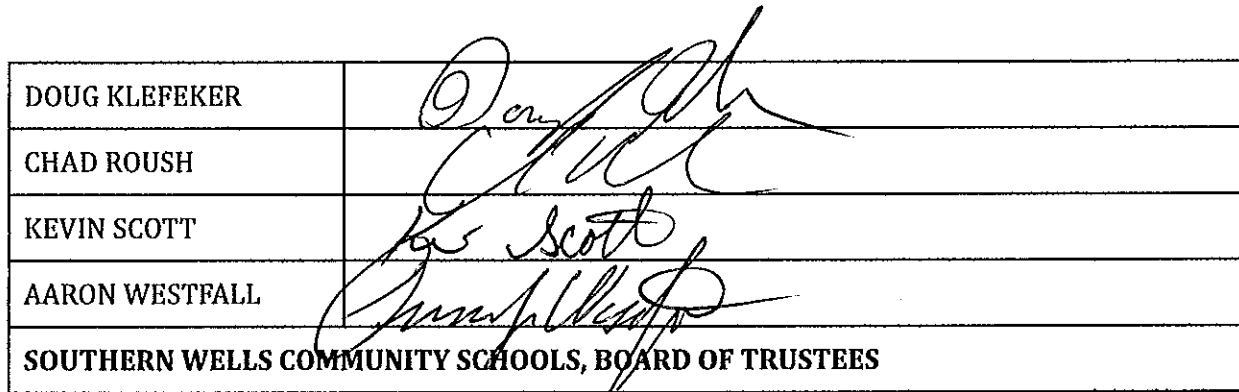 DOUG KLEFEKER Doug
CHAD ROUSH
KEVIN SCOTT Kev Scott
AARON WESTFALL
SOUTHERN WELLS COMMUNITY SCHOOLS, BOARD OF TRUSTEES